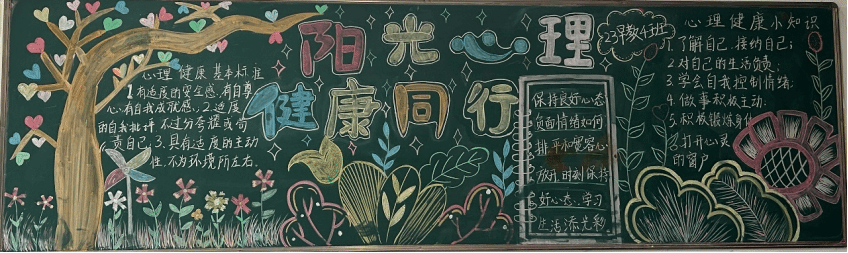 阳光心理
健康同行
23早教4班
心理健康基本标准
1.有适度的安全感,有自尊
心,有自我成就感;2.适度
的自我批评,不过分夸耀或苛
责自己;3.具有适度的主动
性,不为环境所左右.
保持良好心态
负面情绪如何
排 平和宽容心
放开 时刻保持
好心态,学习
生活添光彩
心理健康小知识
1.了解自己,接纳自己;
2.对自己的生活负责;
3.学会自我控制情绪;
4.做事积极主动.
5.积极锻炼身体
6.打开心灵
的窗户